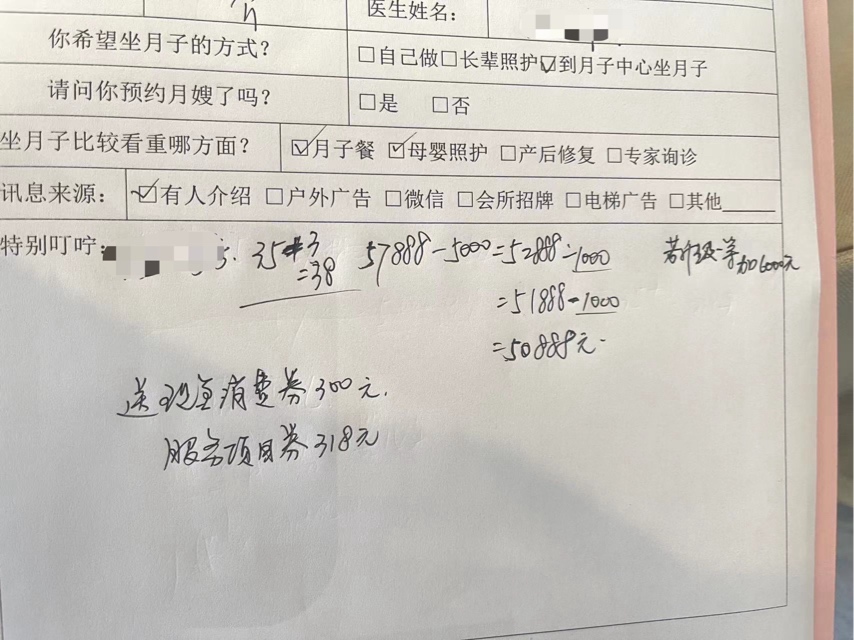 医生姓名：
你希望坐月子的方式？ □自己做□长辈照护☑到月子中心坐月子
请问你预约月嫂了吗？ □是 □否
坐月子比较看重哪方面？ ☑月子餐 ☑母婴照护 □产后修复 □专家询诊
讯息来源： ☑有人介绍 □户外广告 □微信 □会所招牌 □电梯广告 □其他
特别叮咛： 35+3 57888-5000=52888-1000 若升级一等加6000元
=38 =51888-1000
=50888元.
送现金消费券300元.
服务项目券318元